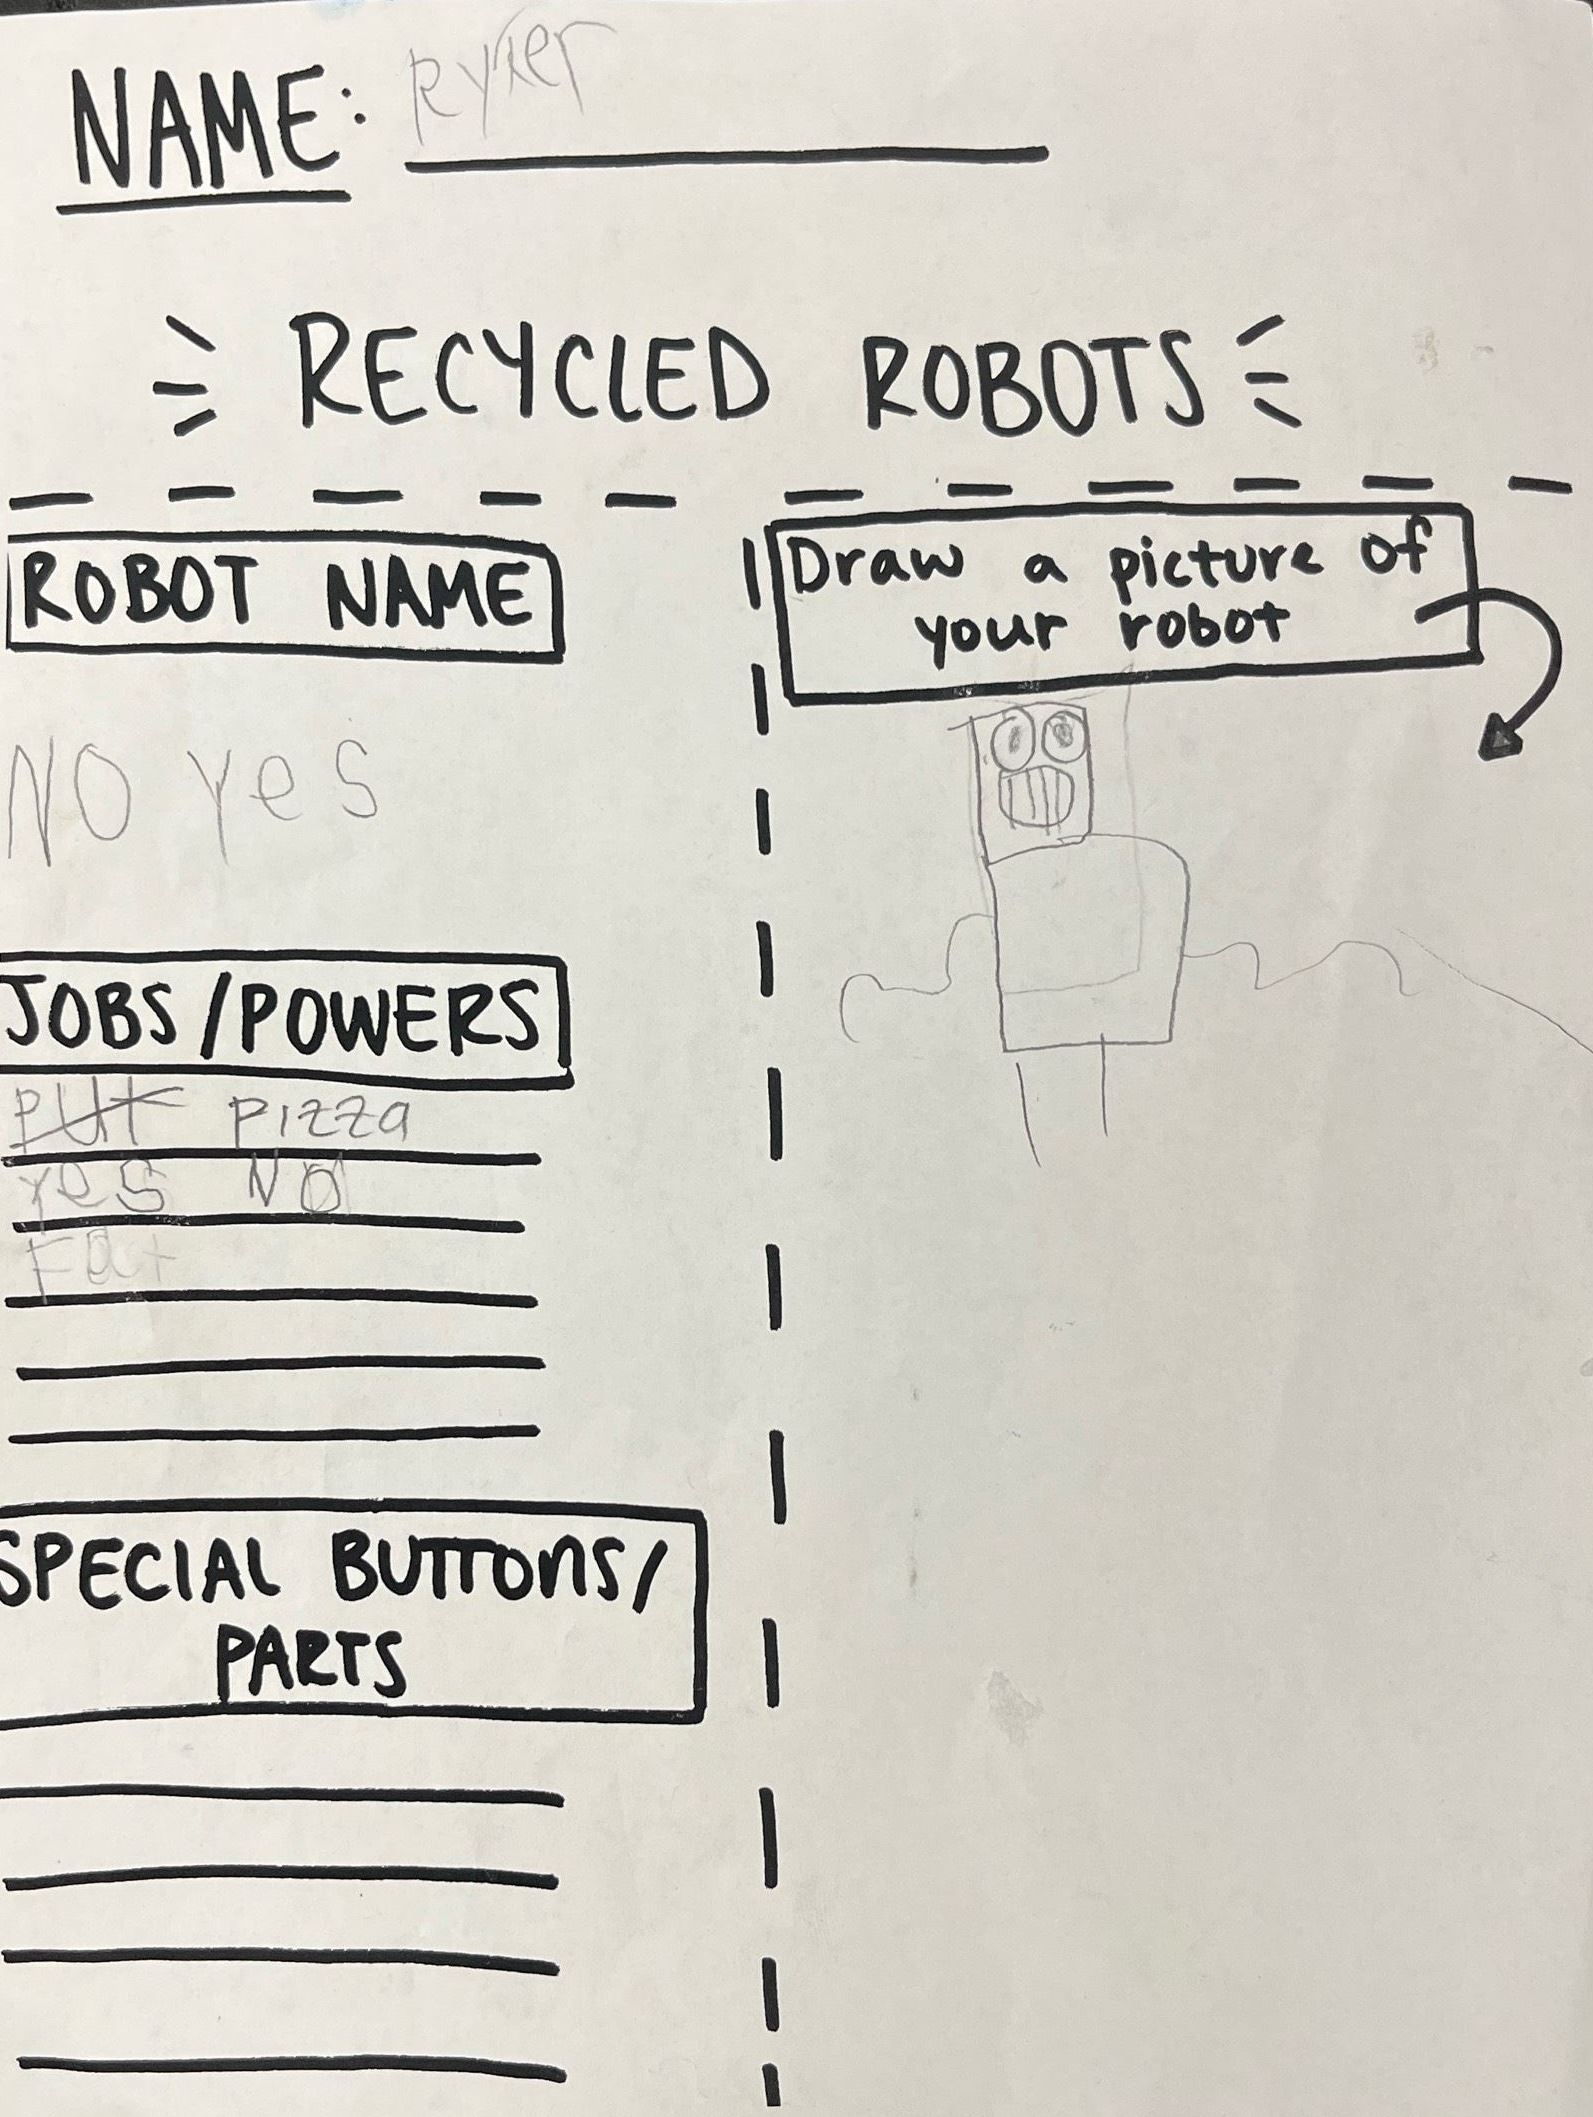 NAME: Ryker
RECYCLED ROBOTS
ROBOT NAME
NO yes
JOBS/POWERS
PUT Pizza
yes NO
SPECIAL BUTTONS/
PARTS
Draw a picture of
your robot